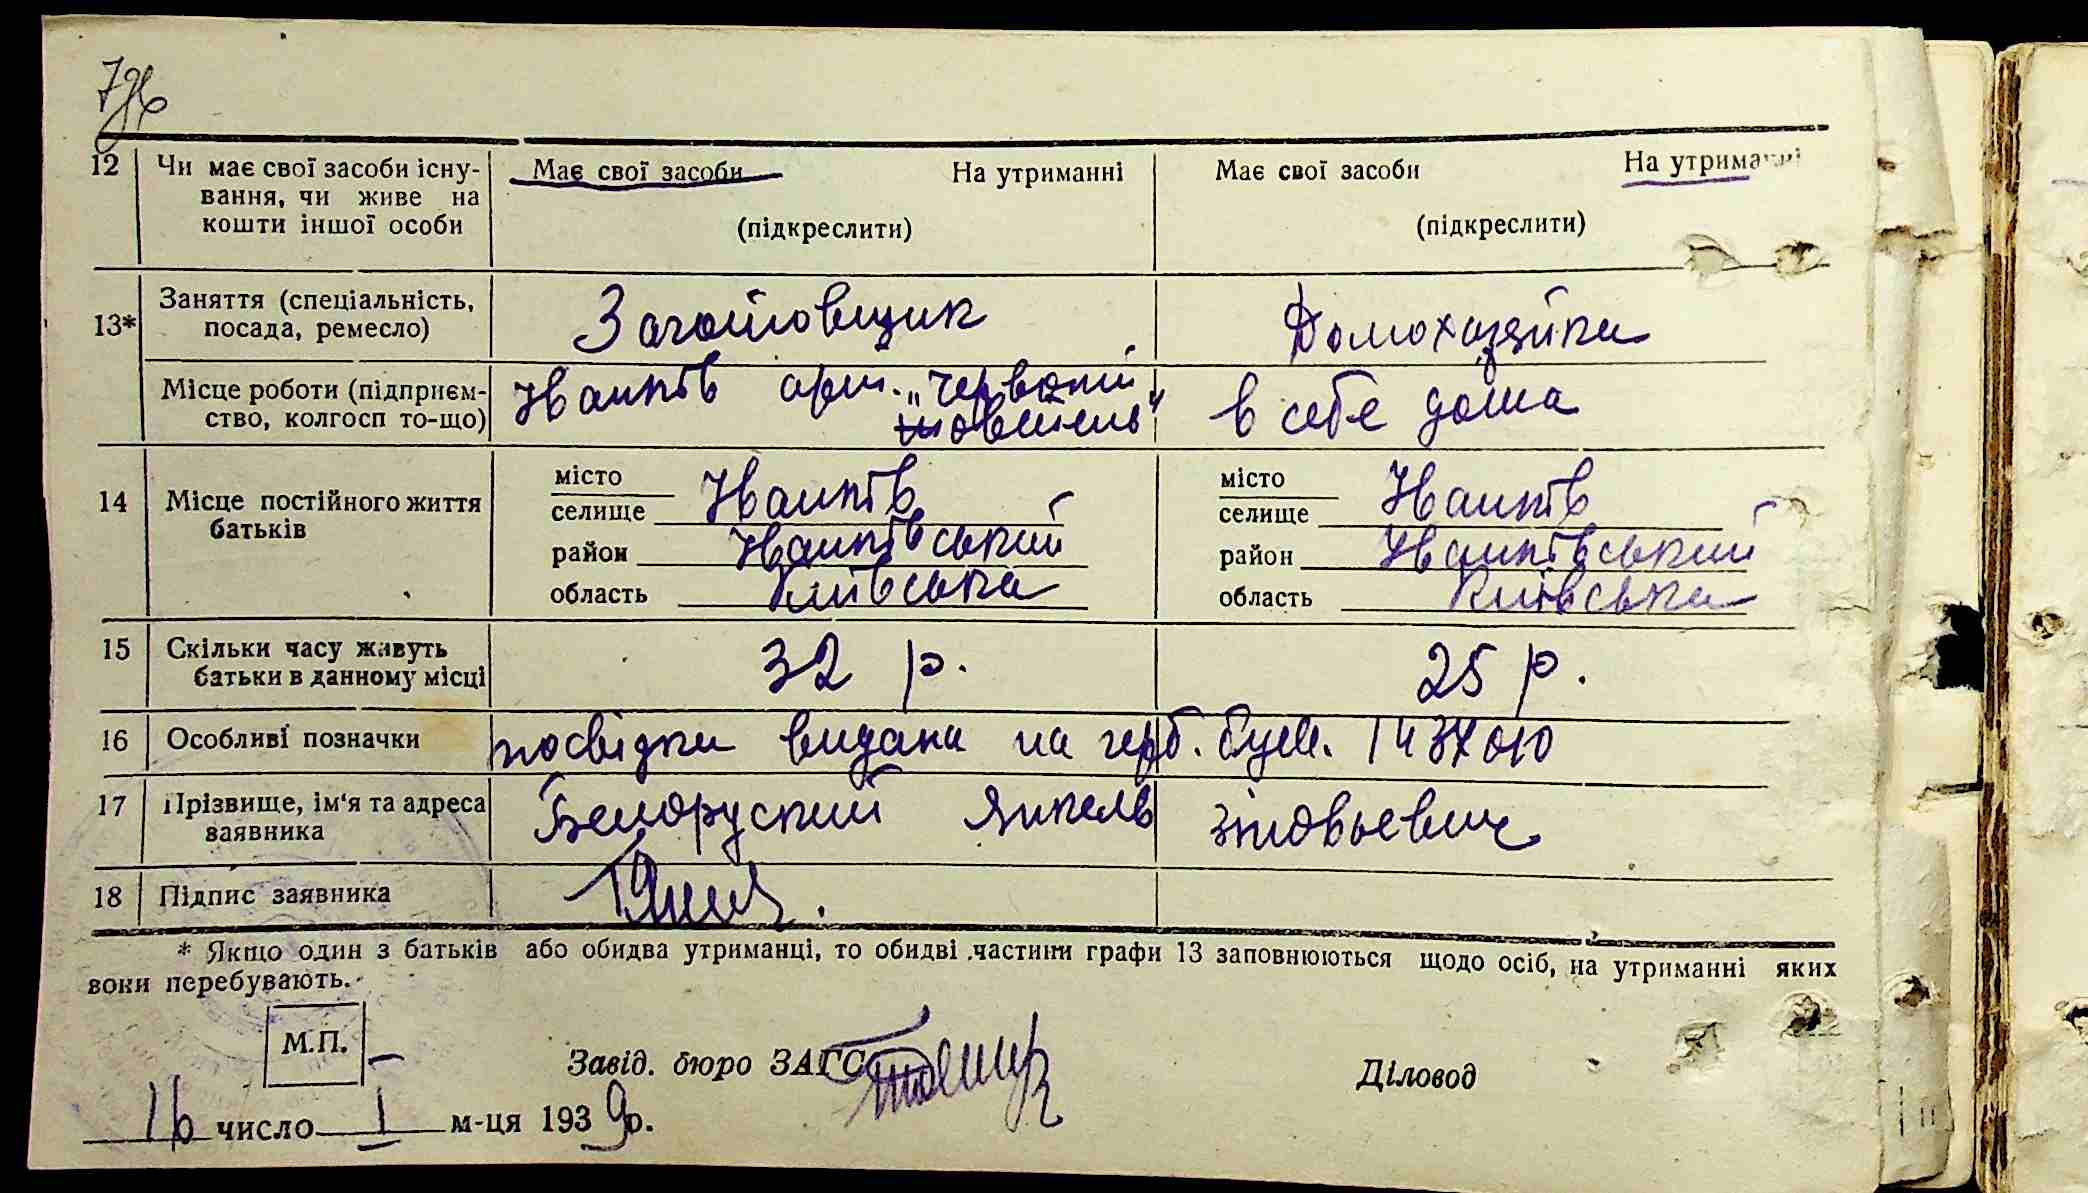 12 Чи має свої засоби існу- Має свої засоби На утриманні Має свої засоби На утриманні
вання, чи живе на
кошти іншої особи (підкреслити) (підкреслити)
13* Заняття (спеціальність, Заготовщик Домохазяйка
посада, ремесло)
Місце роботи (підприєм- Іванків арт. „Червоний в себе дома
ство, колгосп то-що) швець“
14 Місце постійного життя місто Іванків місто Іванків
батьків селище селище
район Іванківський район Іванківський
область Київська область Київська
15 Скільки часу живуть 32 р. 25 р.
батьки в данному місці
16 Особливі позначки посвідка видана на герб. бум.
17 Прізвище, ім‘я та адреса Белоруский Янкель Зіновьевич
заявника
18 Підпис заявника
* Якщо один з батьків або обидва утриманці, то обидві частини графи 13 заповнюються щодо осіб, на утриманні яких
воки перебувають.
М.П.
Завід. бюро ЗАГС Діловод
16 число I м-ця 1939 р.